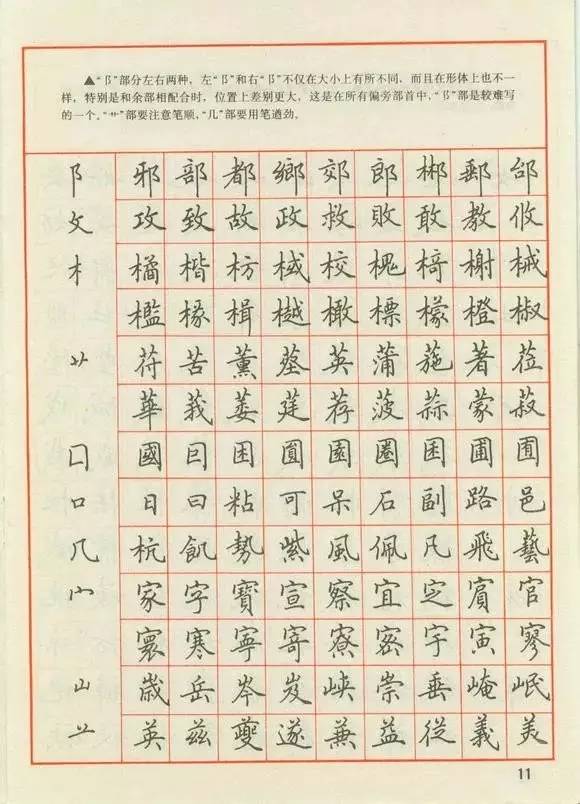 ▲“阝”部分左右两种，左“阝”和右“阝”不仅在大小上有所不同，而且在形体上也不一
样，特别是和余部相配合时，位置上差别更大，这是在所有偏旁部首中，“阝”部是较难写
的一个。“艹”部要注意笔顺，“几”部要用笔遒劲。
阝 邪 部 都 鄉 郊 郎 郴 郵 邰
攵 攻 致 故 政 救 敗 敢 教 攸
木 橘 楷 枋 棫 校 槐 椅 榭 械
檻 椽 楫 樾 橄 標 檬 橙 椒
艹 苻 苦 薰 英 蒲 葹 著 莅
華 莪 蒌 莛 荐 菠 蒜 蒙 菽
囗 國 囙 困 圓 園 圈 困 圃
口 日 曰 粘 可 呆 石 副 路 邑
几 杭 飢 勢 紫 風 佩 凡 飛 藝
宀 家 字 寶 宣 察 宜 定 賓 官
寰 寒 寧 寄 寮 密 宇 寅 寥
山 歲 岳 岑 岌 峽 崇 垂 崦 岷
䒑 英 兹 夔 遂 兼 益 從 義 美
11